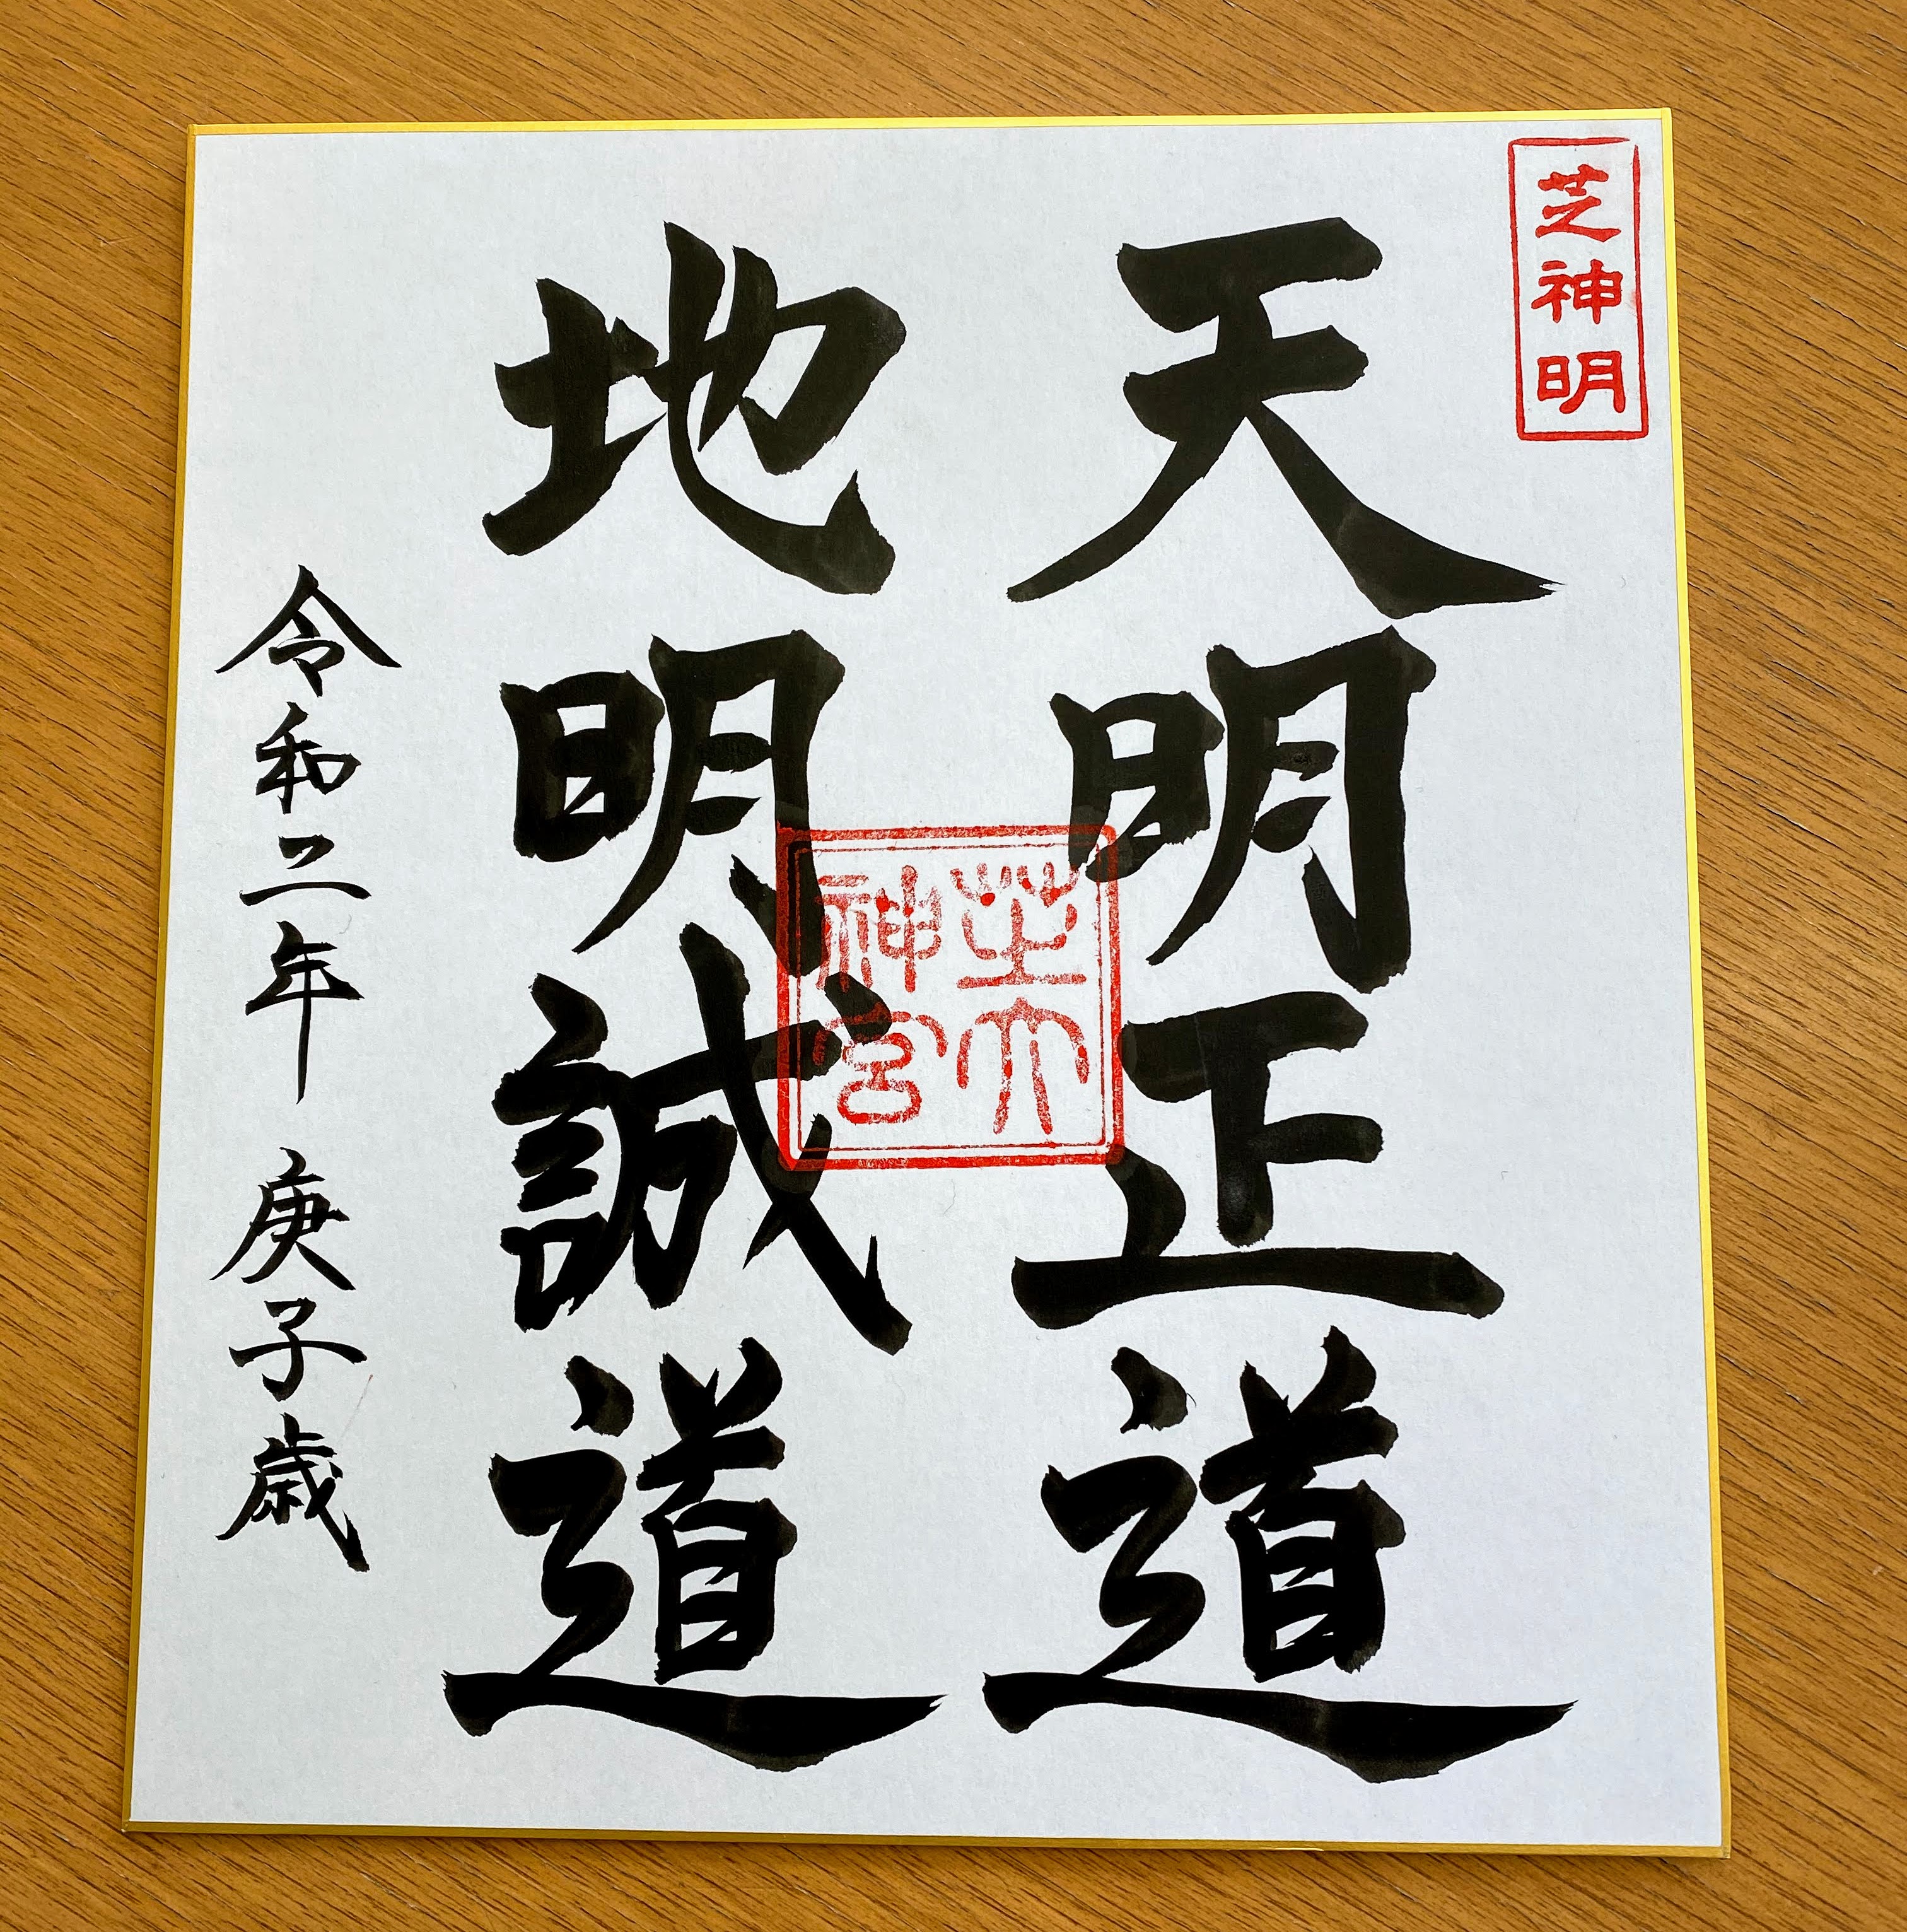 芝神明
天明正道
地明誠道
芝大
神宮
令和二年 庚子歳